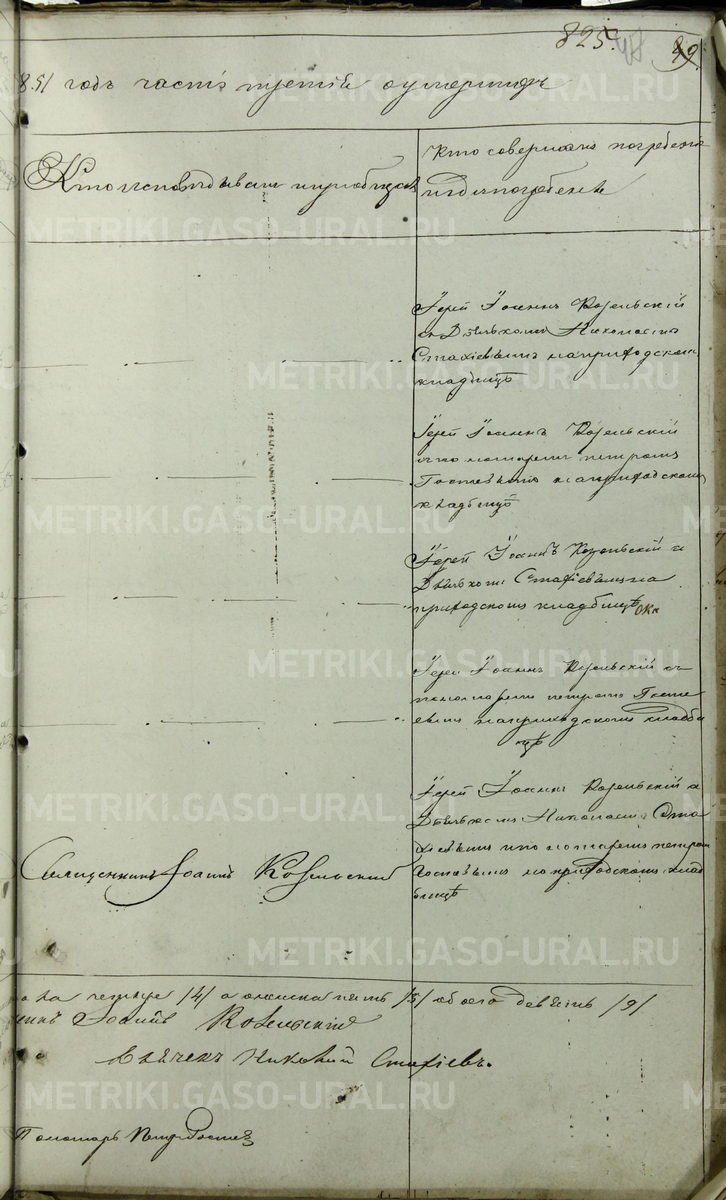 825. 48 49.
851 годъ часть третiя оумершихъ
Кто исповѣдывалъ и прiобщалъ
Кто совершалъ погребенiе
и гдѣ погребены
Iерей Iоаннъ Козельскiй
съ Дьячкомъ Николаемъ
Стахiевымъ на приходском
кладбищѣ
Iерей Iоаннъ Козельскiй
и пономаремъ петромъ
на приходскомъ
кладбищѣ
Iерей Iоаннъ Козельскiй и
Дьячкомъ Стахiевымъ на
приходскомъ кладбищѣ
Iерей Iоаннъ Козельскiй съ
пономаремъ петромъ
на приходскомъ кладби
щѣ
Iерей Iоаннъ Козельскiй и
Дьячкомъ Николаемъ Ста
хiевымъ и пономаремъ петром
на приходскомъ клад
бищѣ
Священникъ Iоаннъ Козельскiй
четыре /4/ а женска пять /5/ обоего девять /9/
Iоаннъ Козельскiй
Дьячекъ Николай Стахiевъ.
Пономарь Петръ
METRIKI.GASO-URAL.RU